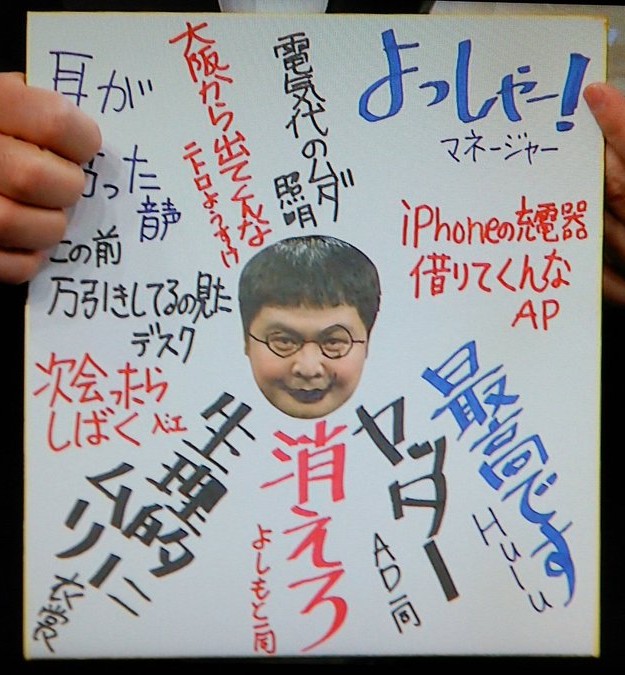 耳が
った
音声
大阪から出てくんな
ニトロようすけ
電気代のムダ
照明
よっしゃー!
マネージャー
この前
万引きしてるの見た
デスク
iPhoneの充電器
借りてくんな
AP
次会ったら
しばく
入江
生理的に
ムリー
衣裳
消えろ
よしもと一同
ヤッター
AD一同
最高です
Hulu